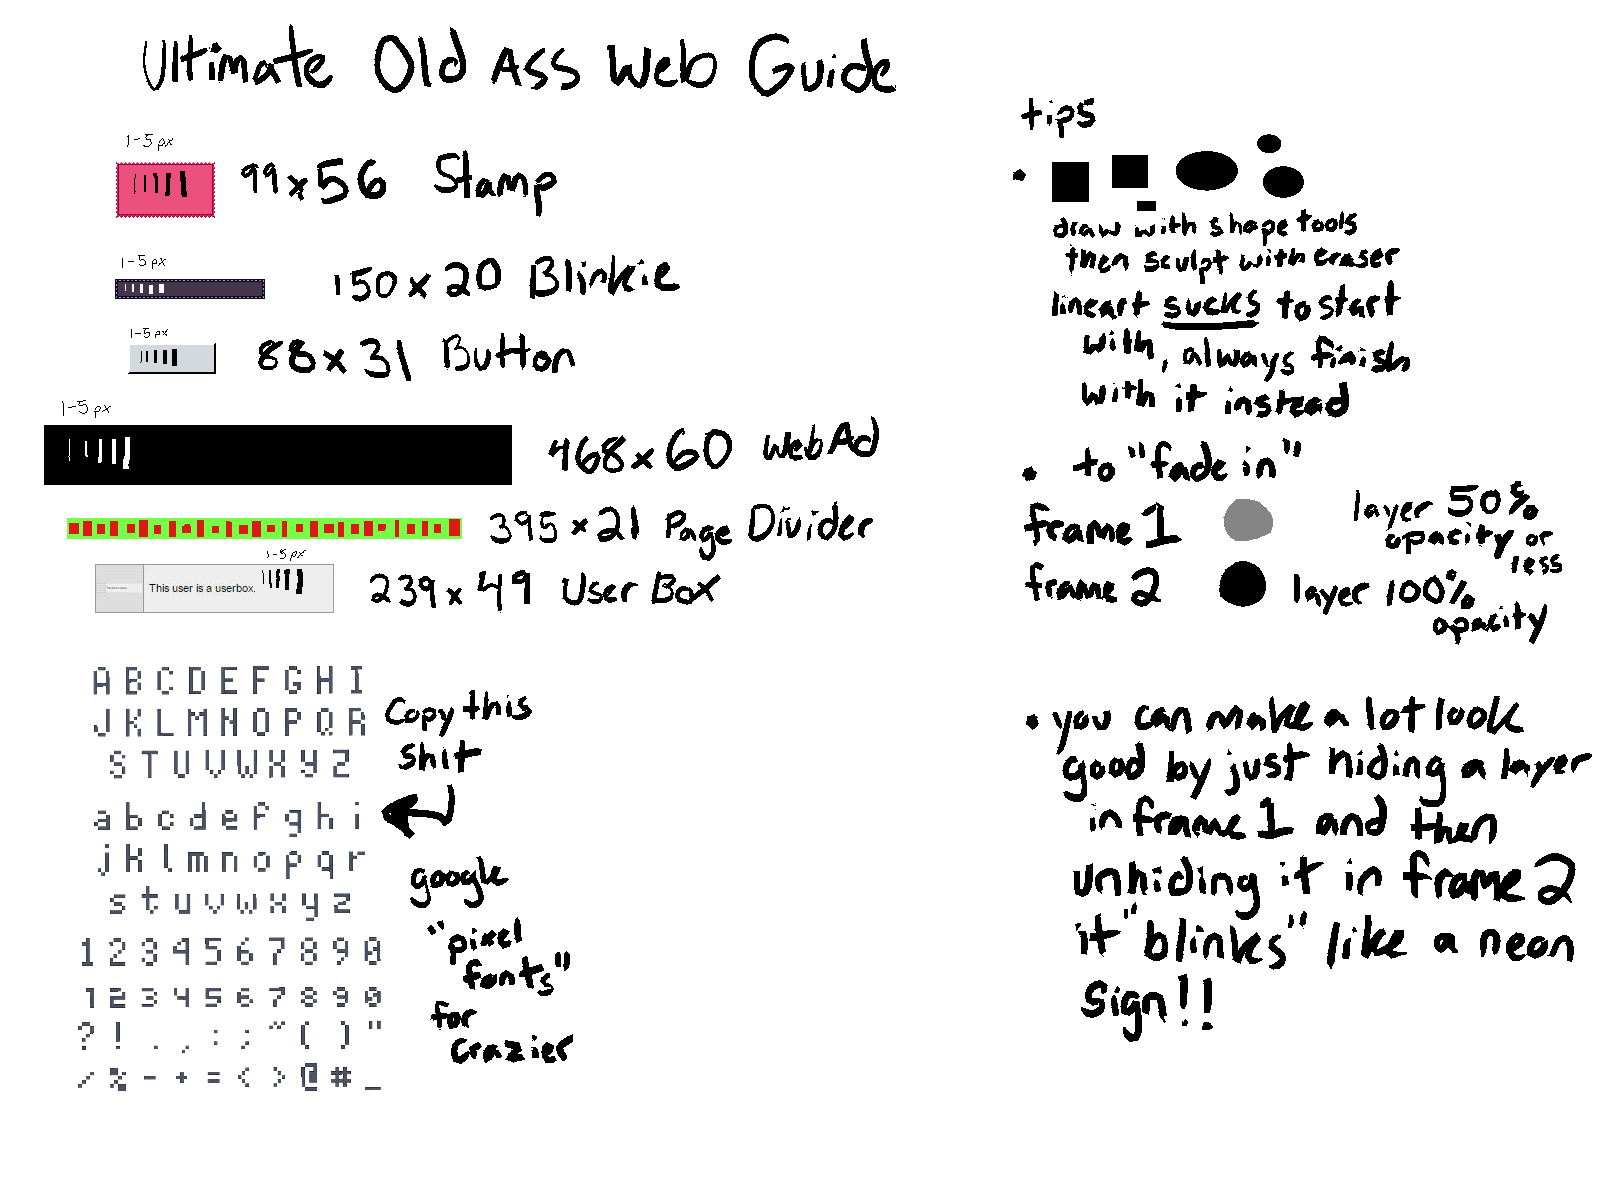 Ultimate Old Ass Web Guide
1-5 px
99x56 Stamp
1-5 px
150x20 Blinkie
1-5 px
88x31 Button
1-5 px
468x60 Web Ad
395x21 Page Divider
1-5 px
This user is a userbox.
239x49 User Box
A B C D E F G H I
J K L M N O P Q R
S T U V W X Y Z
a b c d e f g h i
j k l m n o p q r
s t u v w x y z
1 2 3 4 5 6 7 8 9 0
1 2 3 4 5 6 7 8 9 0
? ! . , : ; ~ ( ) "
/ % - + = < > @ # _
Copy this
shit
google
"pixel
fonts"
for
crazier
tips
draw with shape tools
then sculpt with eraser
lineart sucks to start
with, always finish
with it instead
• to "fade in"
frame 1
layer 50%
opacity or
less
frame 2
layer 100%
opacity
• you can make a lot look
good by just hiding a layer
in frame 1 and then
unhiding it in frame 2
it "blinks" like a neon
sign!!